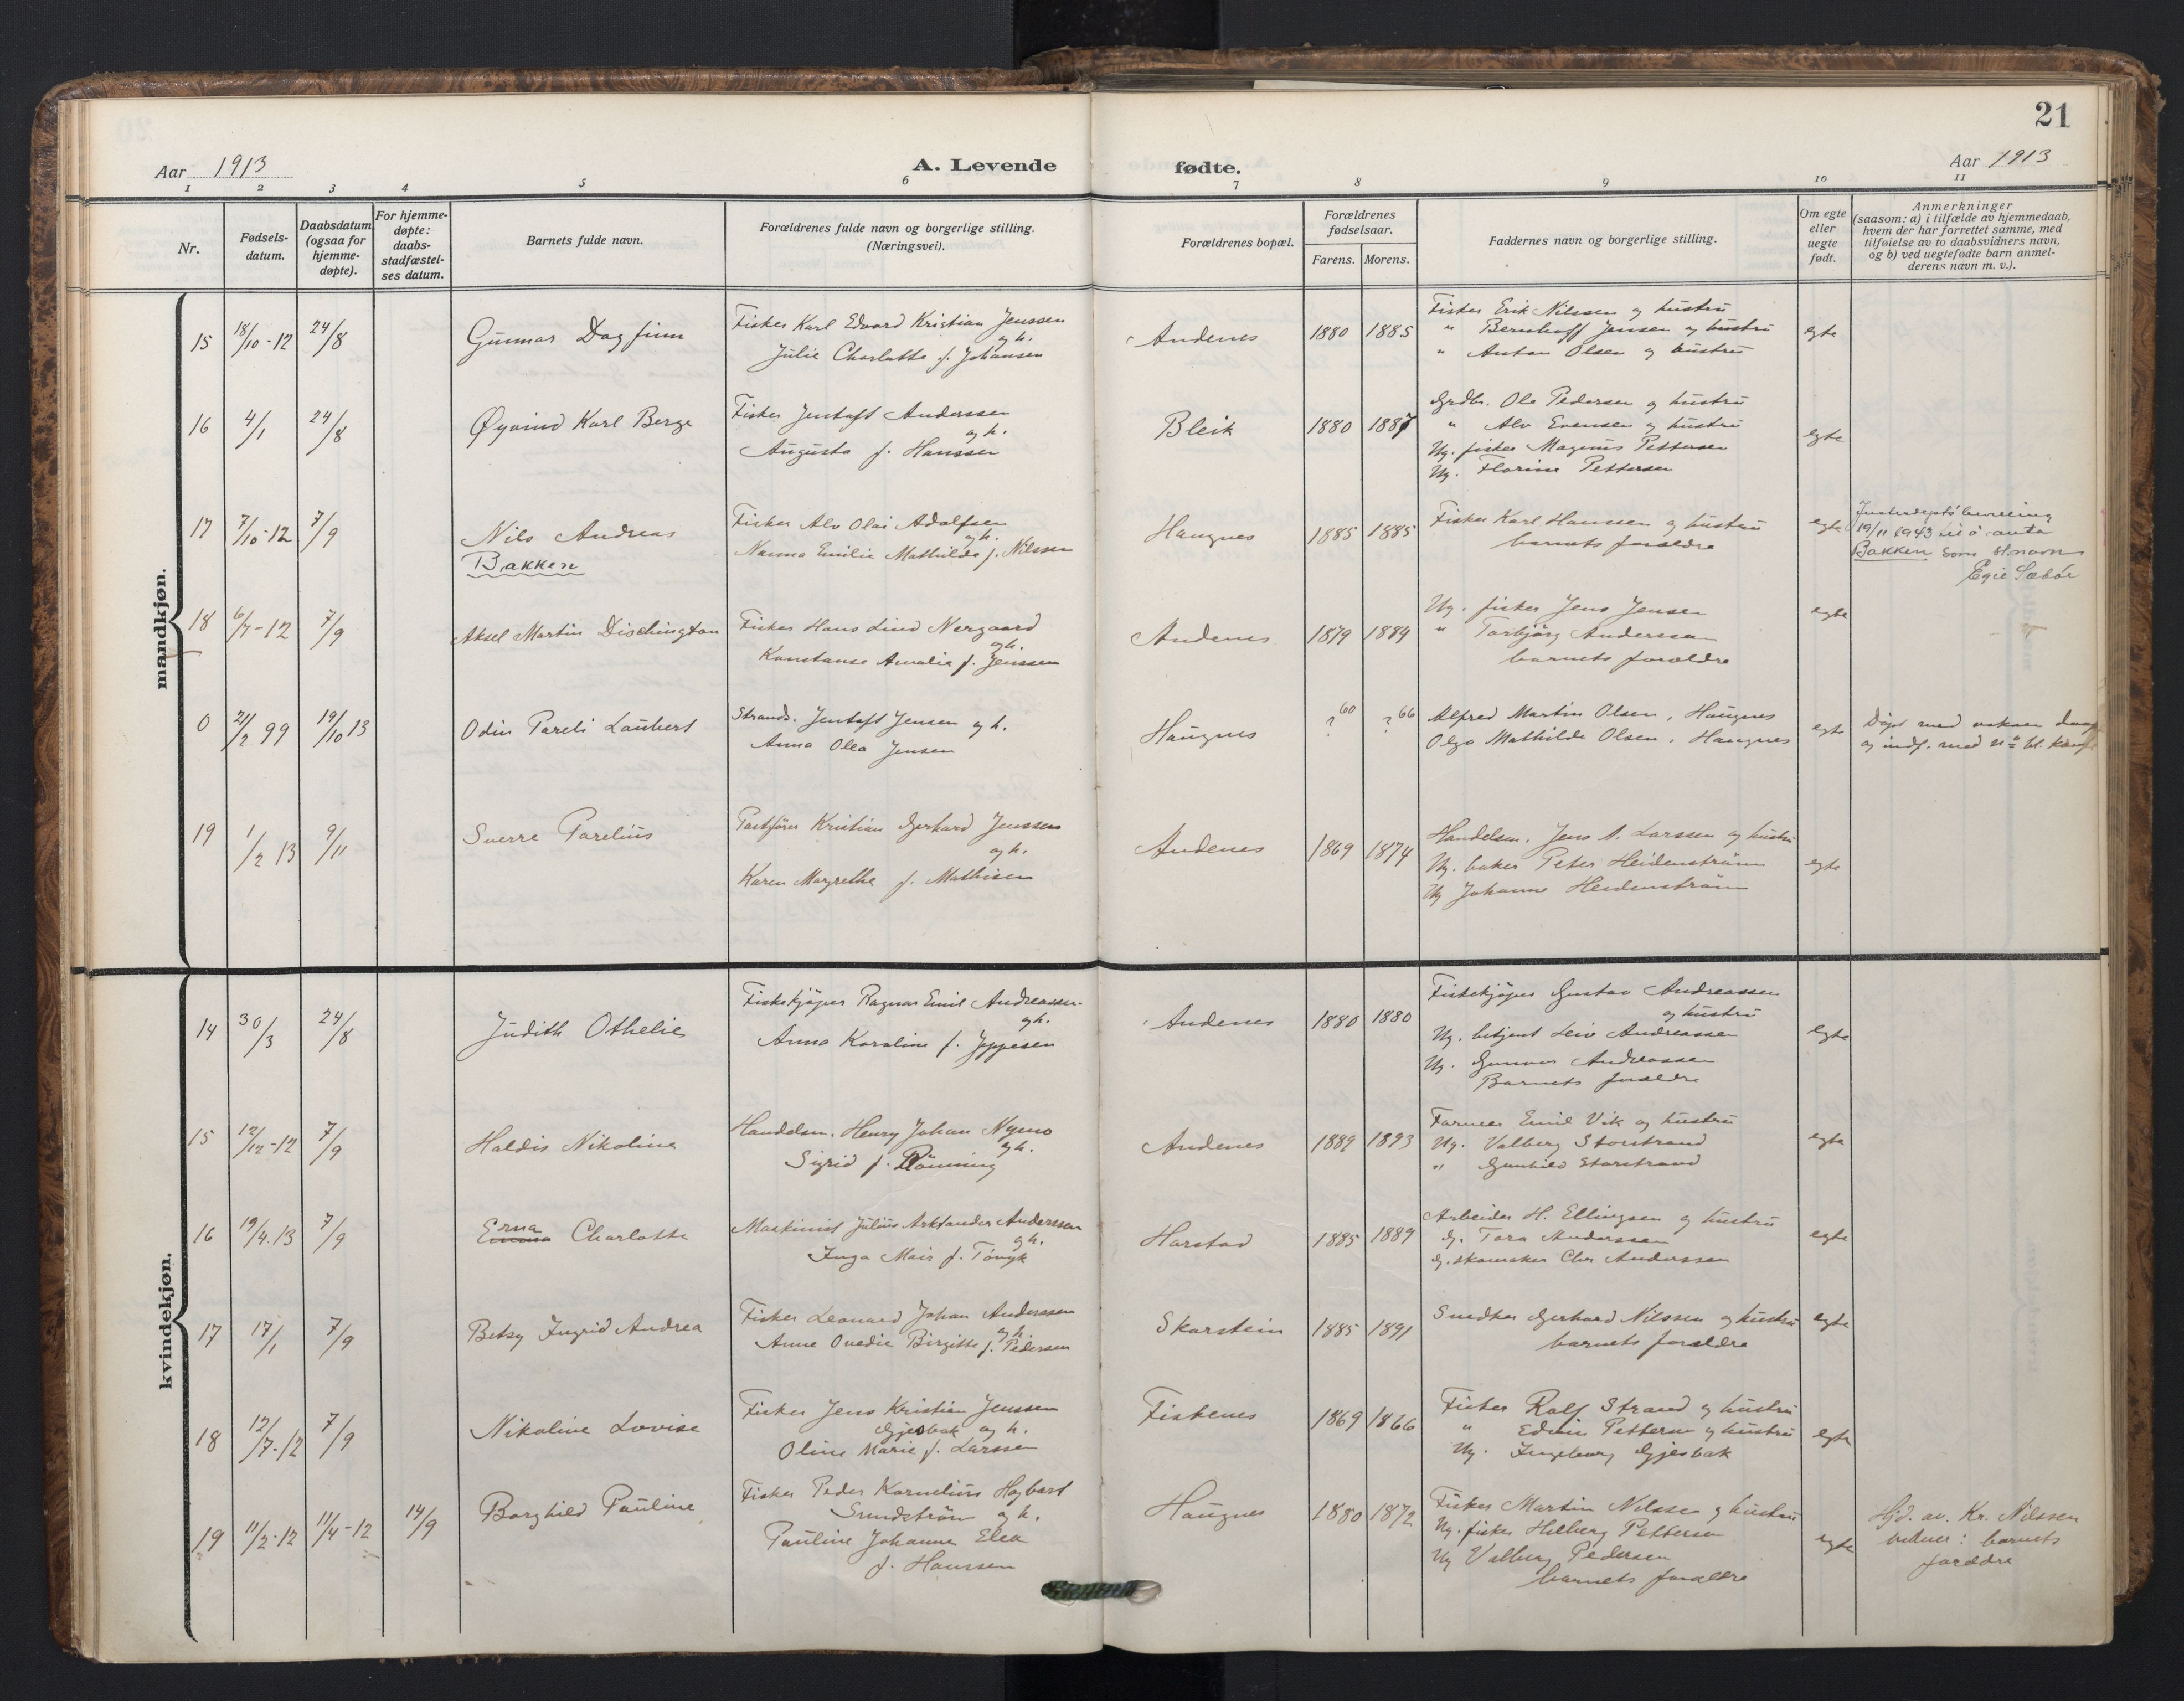 21
Aar 1913
A. Levende fødte.
Aar 1913
1 2 3 4 5 6 7 8 9 10 11
Nr.
Fødsels-
datum.
Daabsdatum
(ogsaa for
hjemme-
døpte).
For hjemme-
døpte:
daabs-
stadfæstel-
ses datum.
Barnets fulde navn.
Forældrenes fulde navn og borgerlige stilling.
(Næringsvei).
Forældrenes bopæl.
Forældrenes
fødselsaar.
Farens. Morens.
Faddernes navn og borgerlige stilling.
Om egte
eller
uegte
født.
Anmerkninger
(saasom: a) i tilfælde av hjemmedaab,
hvem der har forrettet samme, med
tilføielse av to daabsvidners navn,
og b) ved uegtefødte barn anmel-
derens navn m. v.).
mandkjøn.
15 18/10-12 24/8 Gunnar Dagfinn
Fisker Karl Edvard Kristian Jenssen
og h.
Julie Charlotte f. Johansen
Andenes 1880 1885
Fisker Erik Nilssen og hustru
" Bernhoff Jensen og hustru
" Anton Olsen og hustru
egte
16 4/1 24/8 Øyvind Karl Berge
Fisker Jentoft Anderssen
og h.
Augusta f. Hanssen
Bleik 1880 1887
Grdbr. Ole Pedersen og hustru
" Alv Evensen og hustru
Ug. fisker Magnus Pettersen
Ug. Florine Pettersen
egte
17 7/10-12 7/9 Nils Andreas
Bakken
Fisker Alv Olai Adolfsen
og h.
Nanna Emilie Mathilde f. Nilssen
Haugnes 1885 1885
Fisker Karl Hanssen og hustru
barnets forældre
egte
Justisdepts bevilling
19/11 1943 til å anta
Bakken som sl.navn
18 6/7-12 7/9 Aksel Martin Dischington
Fisker Hans Lind Nergaard
og h.
Konstanse Amalie f. Jenssen
Andenes 1879 1884
Ug. fisker Jens Jensen
" Torbjörg Anderssen
barnets forældre
egte
0 21/2 99 19/10 13 Odin Pareli Laubert
Strands. Jentoft Jensen og h.
Anna Olea Jensen
Haugnes ? 60 ? 66
Alfred Martin Olsen, Haugnes
Olga Mathilde Olsen, Haugnes
egte
Døpt med voksen daap
19 1/2 13 9/11 Sverre Parelius
Postfører Kristian Gerhard Jenssen
og h.
Karen Margrethe f. Mathisen
Andenes 1869 1874
Handelsm. Jens A. Larssen og hustru
Ug. baker Peter Heidenstrøm
Ug Johanne Heidenstrøm
egte
kvindekjøn.
14 30/3 24/8 Judith Othelie
Fiskekjøper Ragnar Emil Andreassen
og h.
Anna Karoline f. Jeppesen
Andenes 1880 1880
Fiskekjøper Gustav Andreassen
og hustru
Ug. betjent Leiv Andreassen
Ug. Gunvor Andreassen
Barnets forældre
egte
15 12/12-12 7/9 Haldis Nikoline
Handelsm. Henry Johan Nymo
og h.
Sigrid f. Rönning
Andenes 1889 1893
Emil Vik og hustru
Ug. Valborg Storstrand
" Gunhild Storstrand
egte
16 19/4.13 7/9 Erna
Emma Charlotte
Maskinist Julius Arktander Anderssen
og h.
Inga Mair f.
Harstad 1885 1889
Arbeider H. Ellingsen og hustru
G. Tora Anderssen
G. skomaker Anderssen
egte
17 17/1 7/9 Betsy Ingrid Andrea
Fisker Leonard Johan Anderssen
og h.
Anne Ovedie Birgitte f. Pedersen
Skarstein 1885 1891
Snedker Gerhard Nilssen og hustru
barnets forældre
egte
18 12/7-12 7/9 Nikoline Lovise
Fisker Jens Kristian Jenssen
Gjesbak og h.
Oline Marie f. Larssen
Fiskenes 1869 1866
Fisker Rolf Strand og hustru
" Edvin Pettersen og hustru
Ug. Ingeborg Gjesbak
egte
19 11/2-12 11/4-12 14/9 Borghild Pauline
Fisker Peder Kornelius Hagbart
Sundström og h.
Pauline Johanna Elea
f. Hanssen
Haugnes 1880 1872
Fisker Martin Nilssen og hustru
Ug. fisker Hilberg Pettersen
Ug Valborg Pedersen
barnets forældre
egte
Hjd. av. Kr. Nilssen
vidner: barnets
forældre